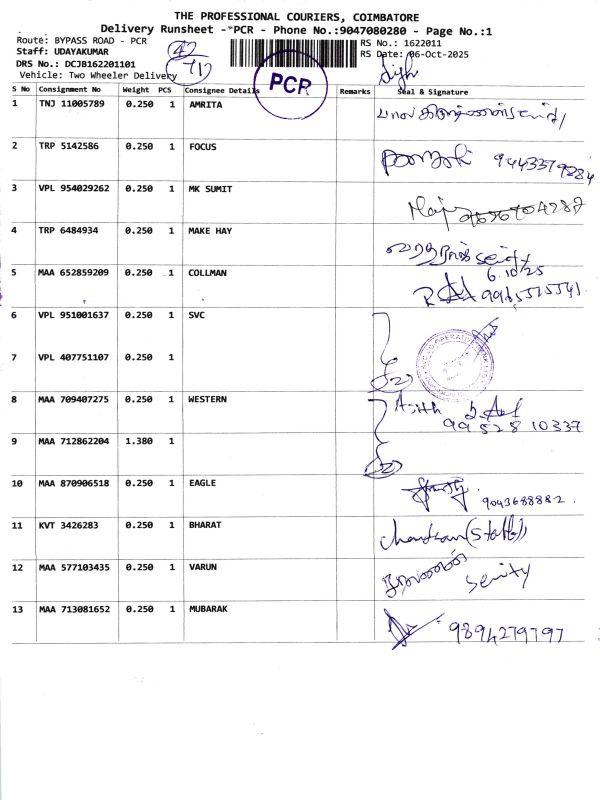 THE PROFESSIONAL COURIERS, COIMBATORE
Delivery Runsheet - PCR - Phone No.:9047080280 - Page No.:1
Route: BYPASS ROAD - PCR
RS No.: 1622011
Staff: UDAYAKUMAR
RS Date: 06-Oct-2025
DRS No.: DCJB162201101
Vehicle: Two Wheeler Delivery
42
712
PCR
S No Consignment No Weight PCS Consignee Details Remarks Seal & Signature
1 TNJ 11005789 0.250 1 AMRITA
2 TRP 5142586 0.250 1 FOCUS
3 VPL 954029262 0.250 1 MK SUMIT
4 TRP 6484934 0.250 1 MAKE HAY
5 MAA 652859209 0.250 1 COLLMAN 6.10/25
6 VPL 951001637 0.250 1 SVC
7 VPL 407751107 0.250 1
8 MAA 709407275 0.250 1 WESTERN
99528 10337
9 MAA 712862204 1.380 1
10 MAA 870906518 0.250 1 EAGLE 9043688882.
11 KVT 3426283 0.250 1 BHARAT
12 MAA 577103435 0.250 1 VARUN
13 MAA 713081652 0.250 1 MUBARAK 9894279797